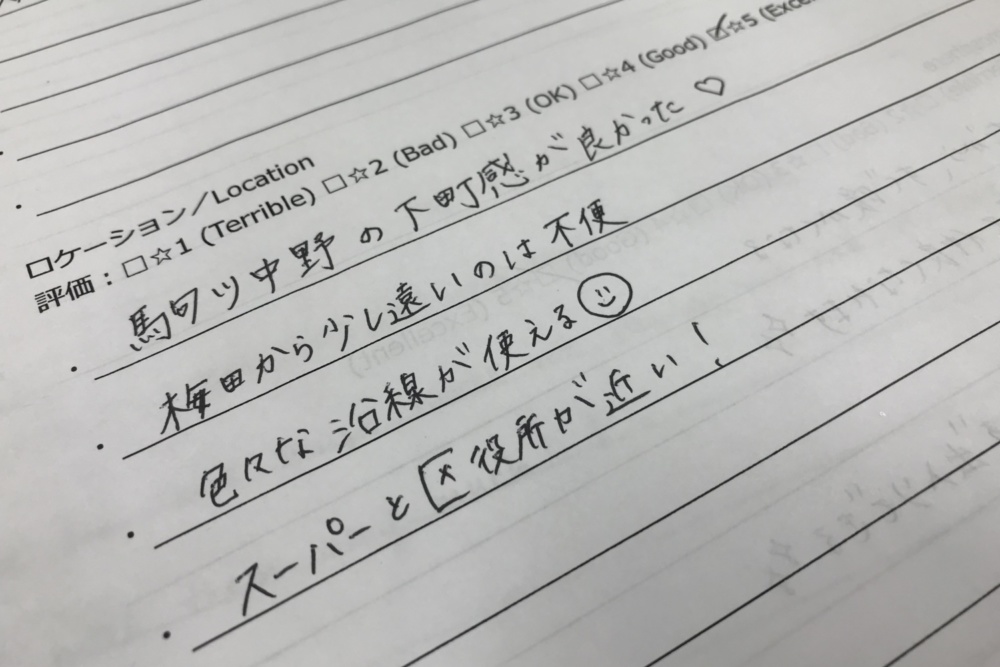 ロケーション／Location
評価：□☆1 (Terrible) □☆2 (Bad) □☆3 (OK) □☆4 (Good) ☑☆5
馬句ツ中野の下町感が良かった♡
梅田から少し遠いのは不便
色々な沿線が使える☺
スーパーと区役所が近い！